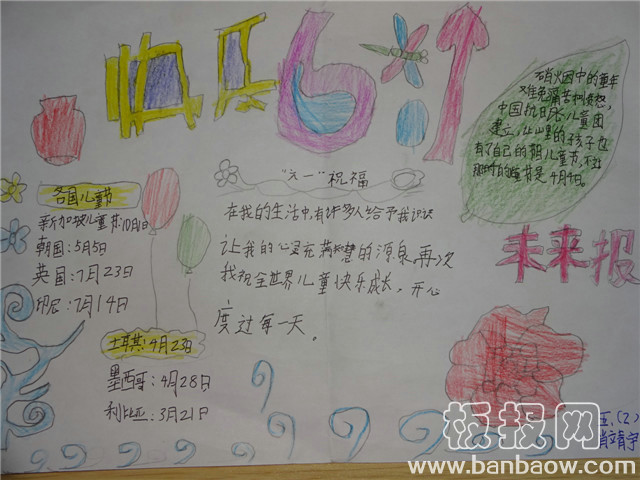 快乐6·1
硝火烟中的童年
难免痛苦和愤怒,
中国抗日水儿童团
建立,让山里的孩子也
有了自己的
节是4月4日。
"六一"祝福
在我的生活中,有许多人给予我识识
让我的心灵充满智慧的源泉,再次
我祝全世界儿童快乐成长,开心
度过每一天。
各国儿童节
新加坡儿童节:10月1日
朝国:5月5日
英国:7月23日
印尼:7月14日
土耳其:4月23日
墨西哥:4月28日
利比亚:3月21日
未来报
五、(2)
肖靖宇
板报网
www.banbaow.com